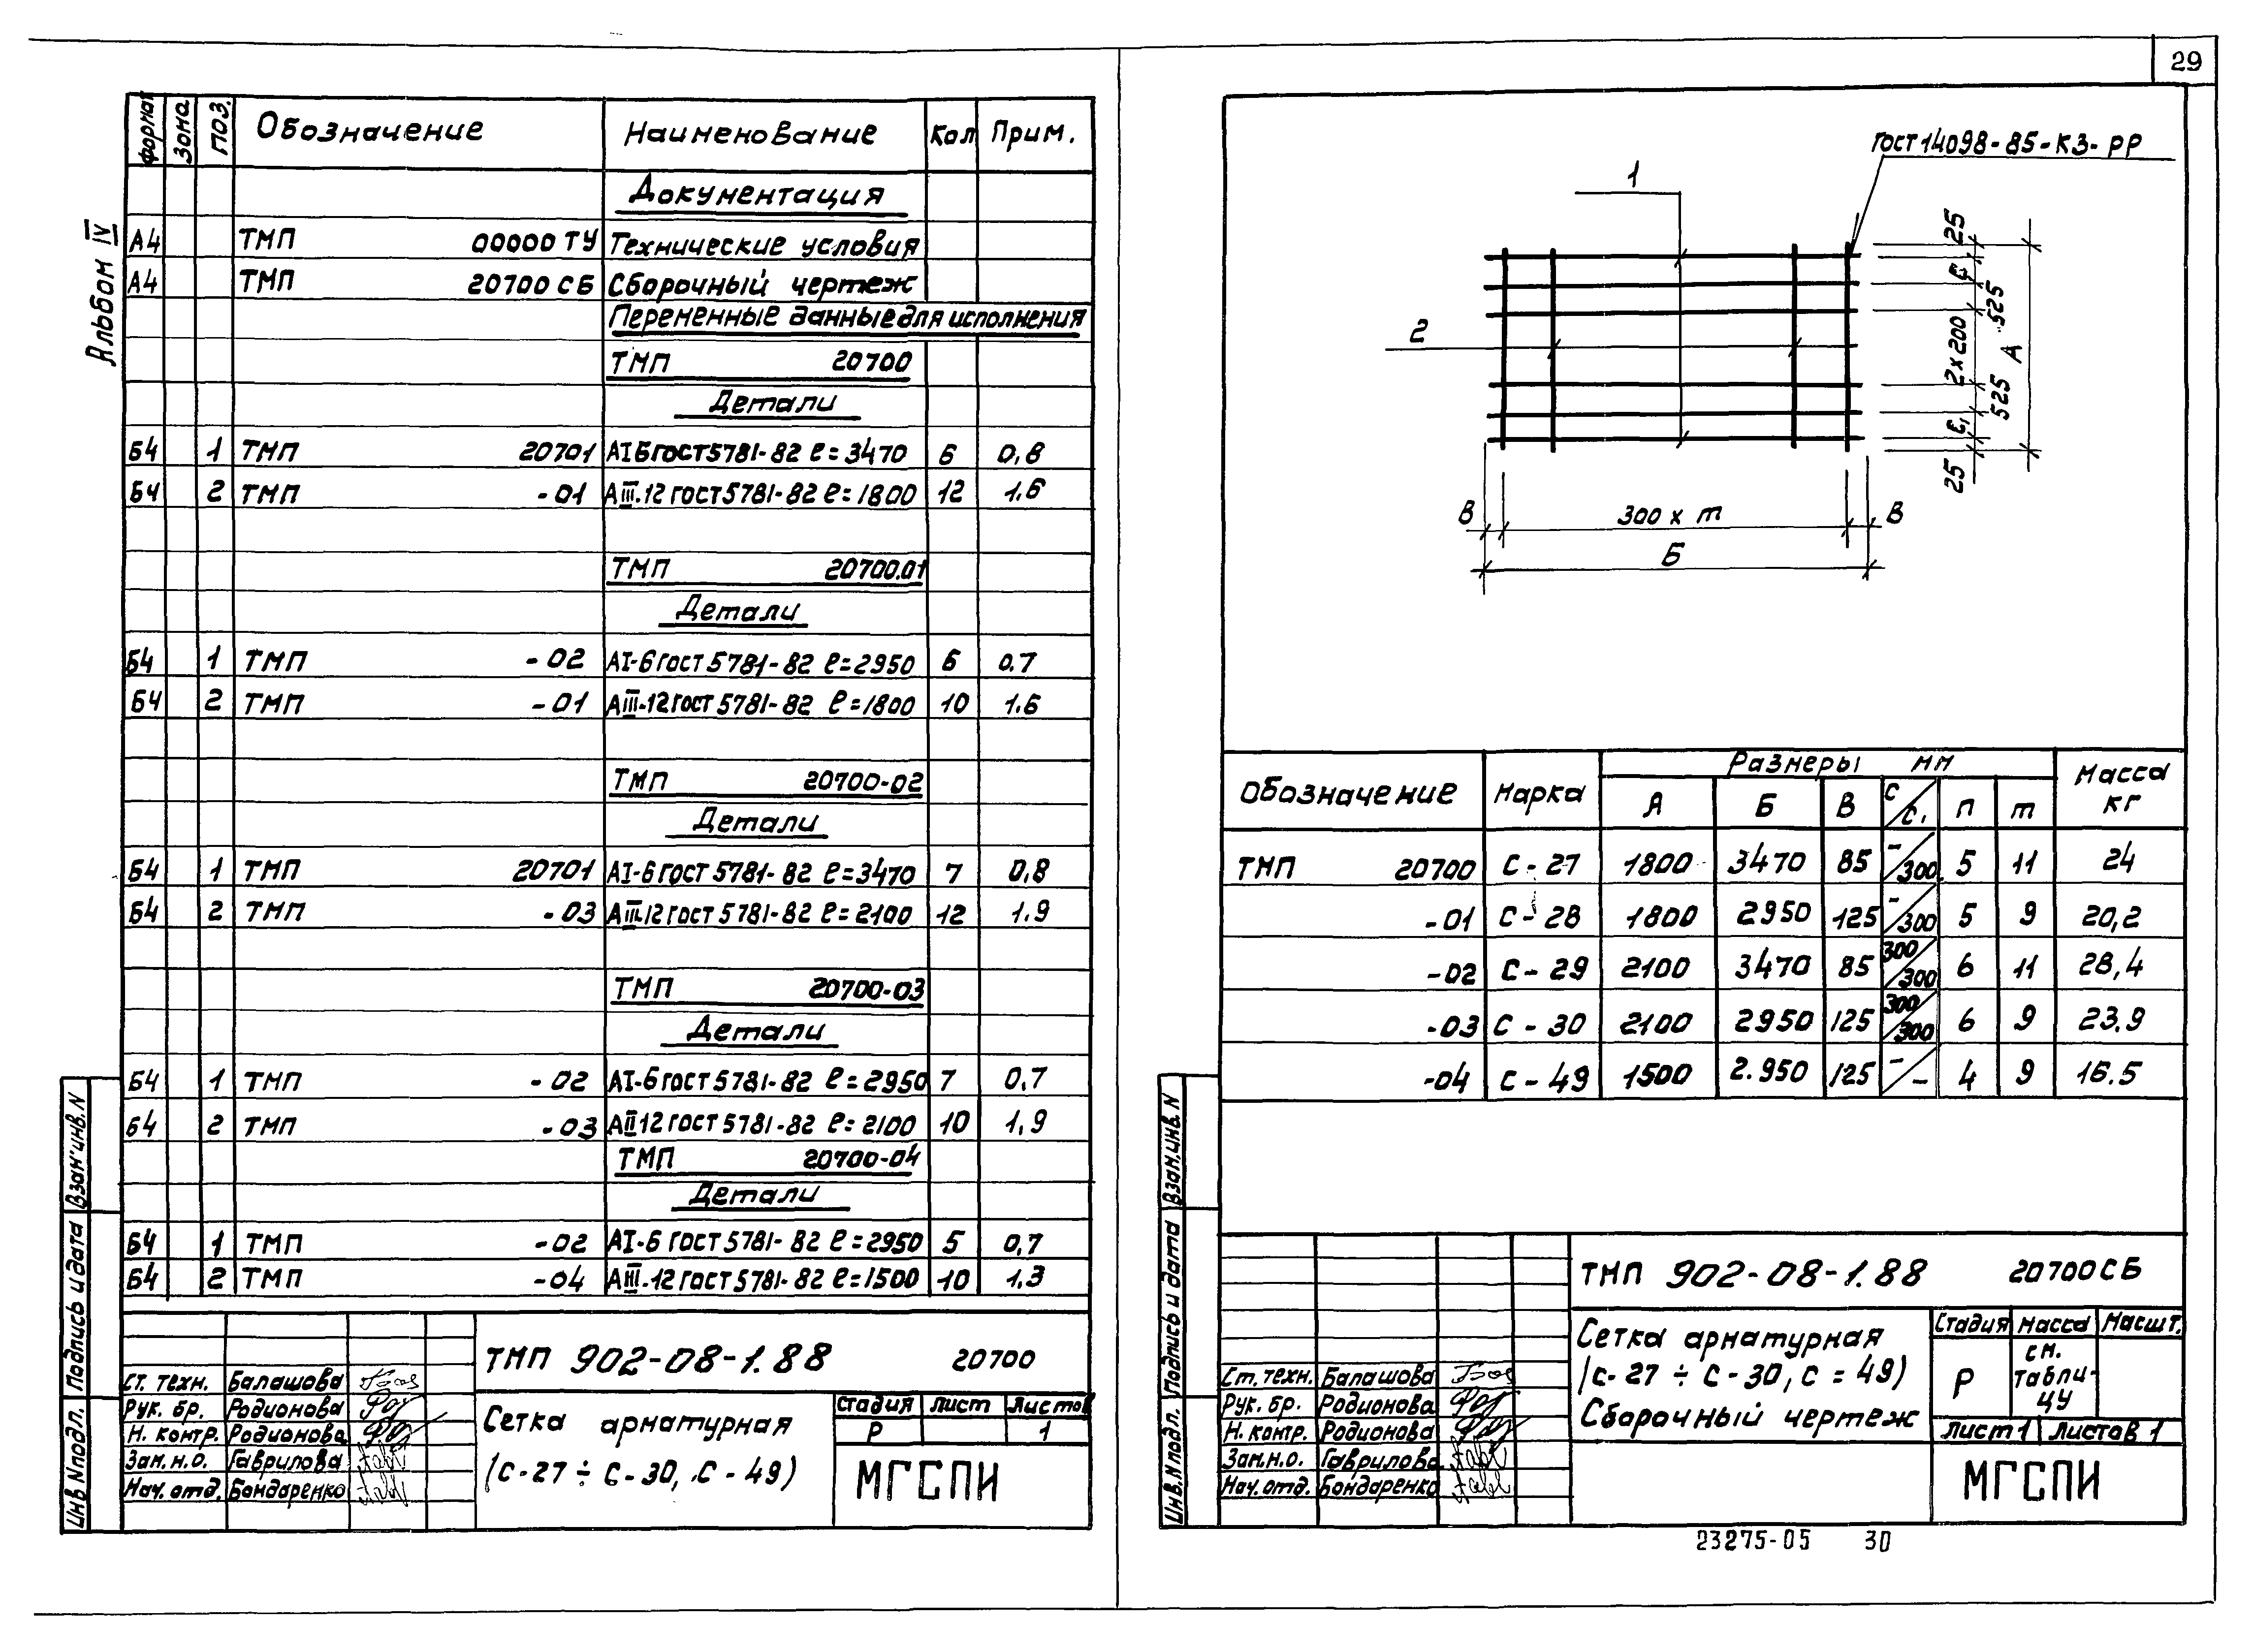 29
Альбом IV
формат Зона Поз. Обозначение Наименование Кол Прим.
Документация
А4 ТМП 00000 ТУ Технические условия
А4 ТМП 20700 СБ Сборочный чертеж
Переменные данные для исполнения
ТМП 20700
Детали
Б4 1 ТМП 20701 АI 6 ГОСТ 5781-82 ℓ=3470 6 0,8
Б4 2 ТМП -01 АIII.12 ГОСТ 5781-82 ℓ=1800 12 1.6
ТМП 20700.01
Детали
Б4 1 ТМП -02 АI-6 ГОСТ 5781-82 ℓ=2950 6 0.7
Б4 2 ТМП -01 АIII-12 ГОСТ 5781-82 ℓ=1800 10 1.6
ТМП 20700-02
Детали
Б4 1 ТМП 20701 АI-6 ГОСТ 5781-82 ℓ=3470 7 0,8
Б4 2 ТМП -03 АIII.12 ГОСТ 5781-82 ℓ=2100 12 1.9
ТМП 20700-03
Детали
Б4 1 ТМП -02 АI-6 ГОСТ 5781-82 ℓ=2950 7 0.7
Б4 2 ТМП -03 АII 12 ГОСТ 5781-82 ℓ=2100 10 1,9
ТМП 20700-04
Детали
Б4 1 ТМП -02 АI-6 ГОСТ 5781-82 ℓ=2950 5 0,7
Б4 2 ТМП -04 АIII-12 ГОСТ 5781-82 ℓ=1500 10 1.3
Инв N подл. Подпись и дата Взам.инв.N
ТМП 902-08-1.88 20700
Ст. техн. Балашова
Рук. бр. Родионова
Н. контр. Родионова
Зам.н.о. Гаврилова
Нач.отд. Бондаренко
Сетка арматурная
(С-27 ÷ С-30, С-49)
Стадия Лист Листов
Р 1
МГСПИ
ГОСТ 14098-85-К3-РР
1
2
25
С
525
2х200
А
525
С1
25
В 300 х m В
Б
Обозначение Марка Размеры мм Масса кг
А Б В С/С1 п m
ТМП 20700 С-27 1800 3470 85 -/300 5 11 24
-01 С-28 1800 2950 125 -/300 5 9 20,2
-02 С-29 2100 3470 85 300/300 6 11 28,4
-03 С-30 2100 2950 125 300/300 6 9 23.9
-04 С-49 1500 2.950 125 -/- 4 9 16.5
Инв.N подл. Подпись и дата Взам.инв.N
ТМП 902-08-1.88 20700СБ
Ст.техн. Балашова
Рук.бр. Родионова
Н.контр. Родионова
Зам.н.о. Гаврилова
Нач.отд. Бондаренко
Сетка арматурная
(С-27 ÷ С-30, С=49)
Сборочный чертеж
Стадия Масса Масшт.
Р см. табли-цу
Лист 1 Листов 1
МГСПИ
23275-05 30